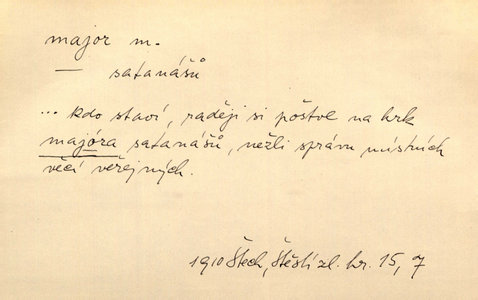 major m.
— satanášů
... kdo staví, raději si poštve na krk
majóra satanášů, nežli správu místních
věcí veřejných.
1910 Štech, Štěstí zl. hr. 15, 7